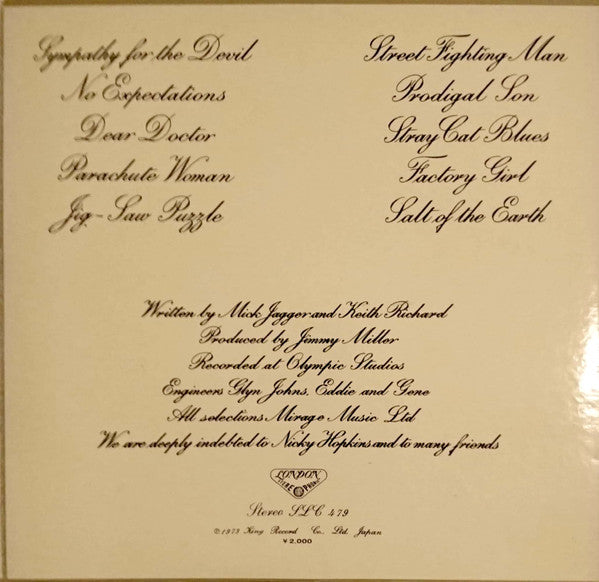 Sympathy for the Devil
No Expectations
Dear Doctor
Parachute Woman
Jig-Saw Puzzle
Street Fighting Man
Prodigal Son
Stray Cat Blues
Factory Girl
Salt of the Earth
Written by Mick Jagger and Keith Richard
Produced by Jimmy Miller
Recorded at Olympic Studios
Engineers Glyn Johns, Eddie and Gene
All selections Mirage Music Ltd
We are deeply indebted to Nicky Hopkins and to many friends
LONDON
STEREO PHONIC
Stereo SLC 479
©1973 King Record Co., Ltd. Japan
¥2,000